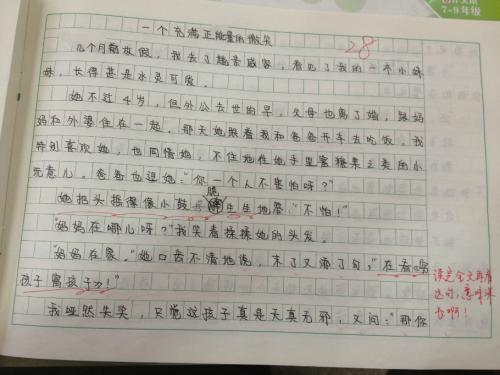 7-9年级
一个充满正能量的微笑
28
几个月前放假，我去了趟亲戚家，看见了我的一个小妹
妹，长得甚是水灵可爱。
她不过4岁，但外公去世的早，父母也离了婚，跟妈
妈和外婆住在一起。那天她跟着我和爸爸开车去吃饭。我
特别喜欢她，也同情她，不住地往她手里塞糖果之类的小
玩意儿。爸爸也逗她："你一个人不害怕呀？"
她把头摇得像小鼓，脆生生地答："不怕！"
"妈妈在哪儿呀？"我笑着揉揉她的头发。
"妈妈在家。"她口齿不清地说，末了又添了句，"在看《
孩子离孩子》！"
读完全文再看
这句，意味深
长啊！
我哑然失笑，只觉这孩子真是天真无邪，又问："那你